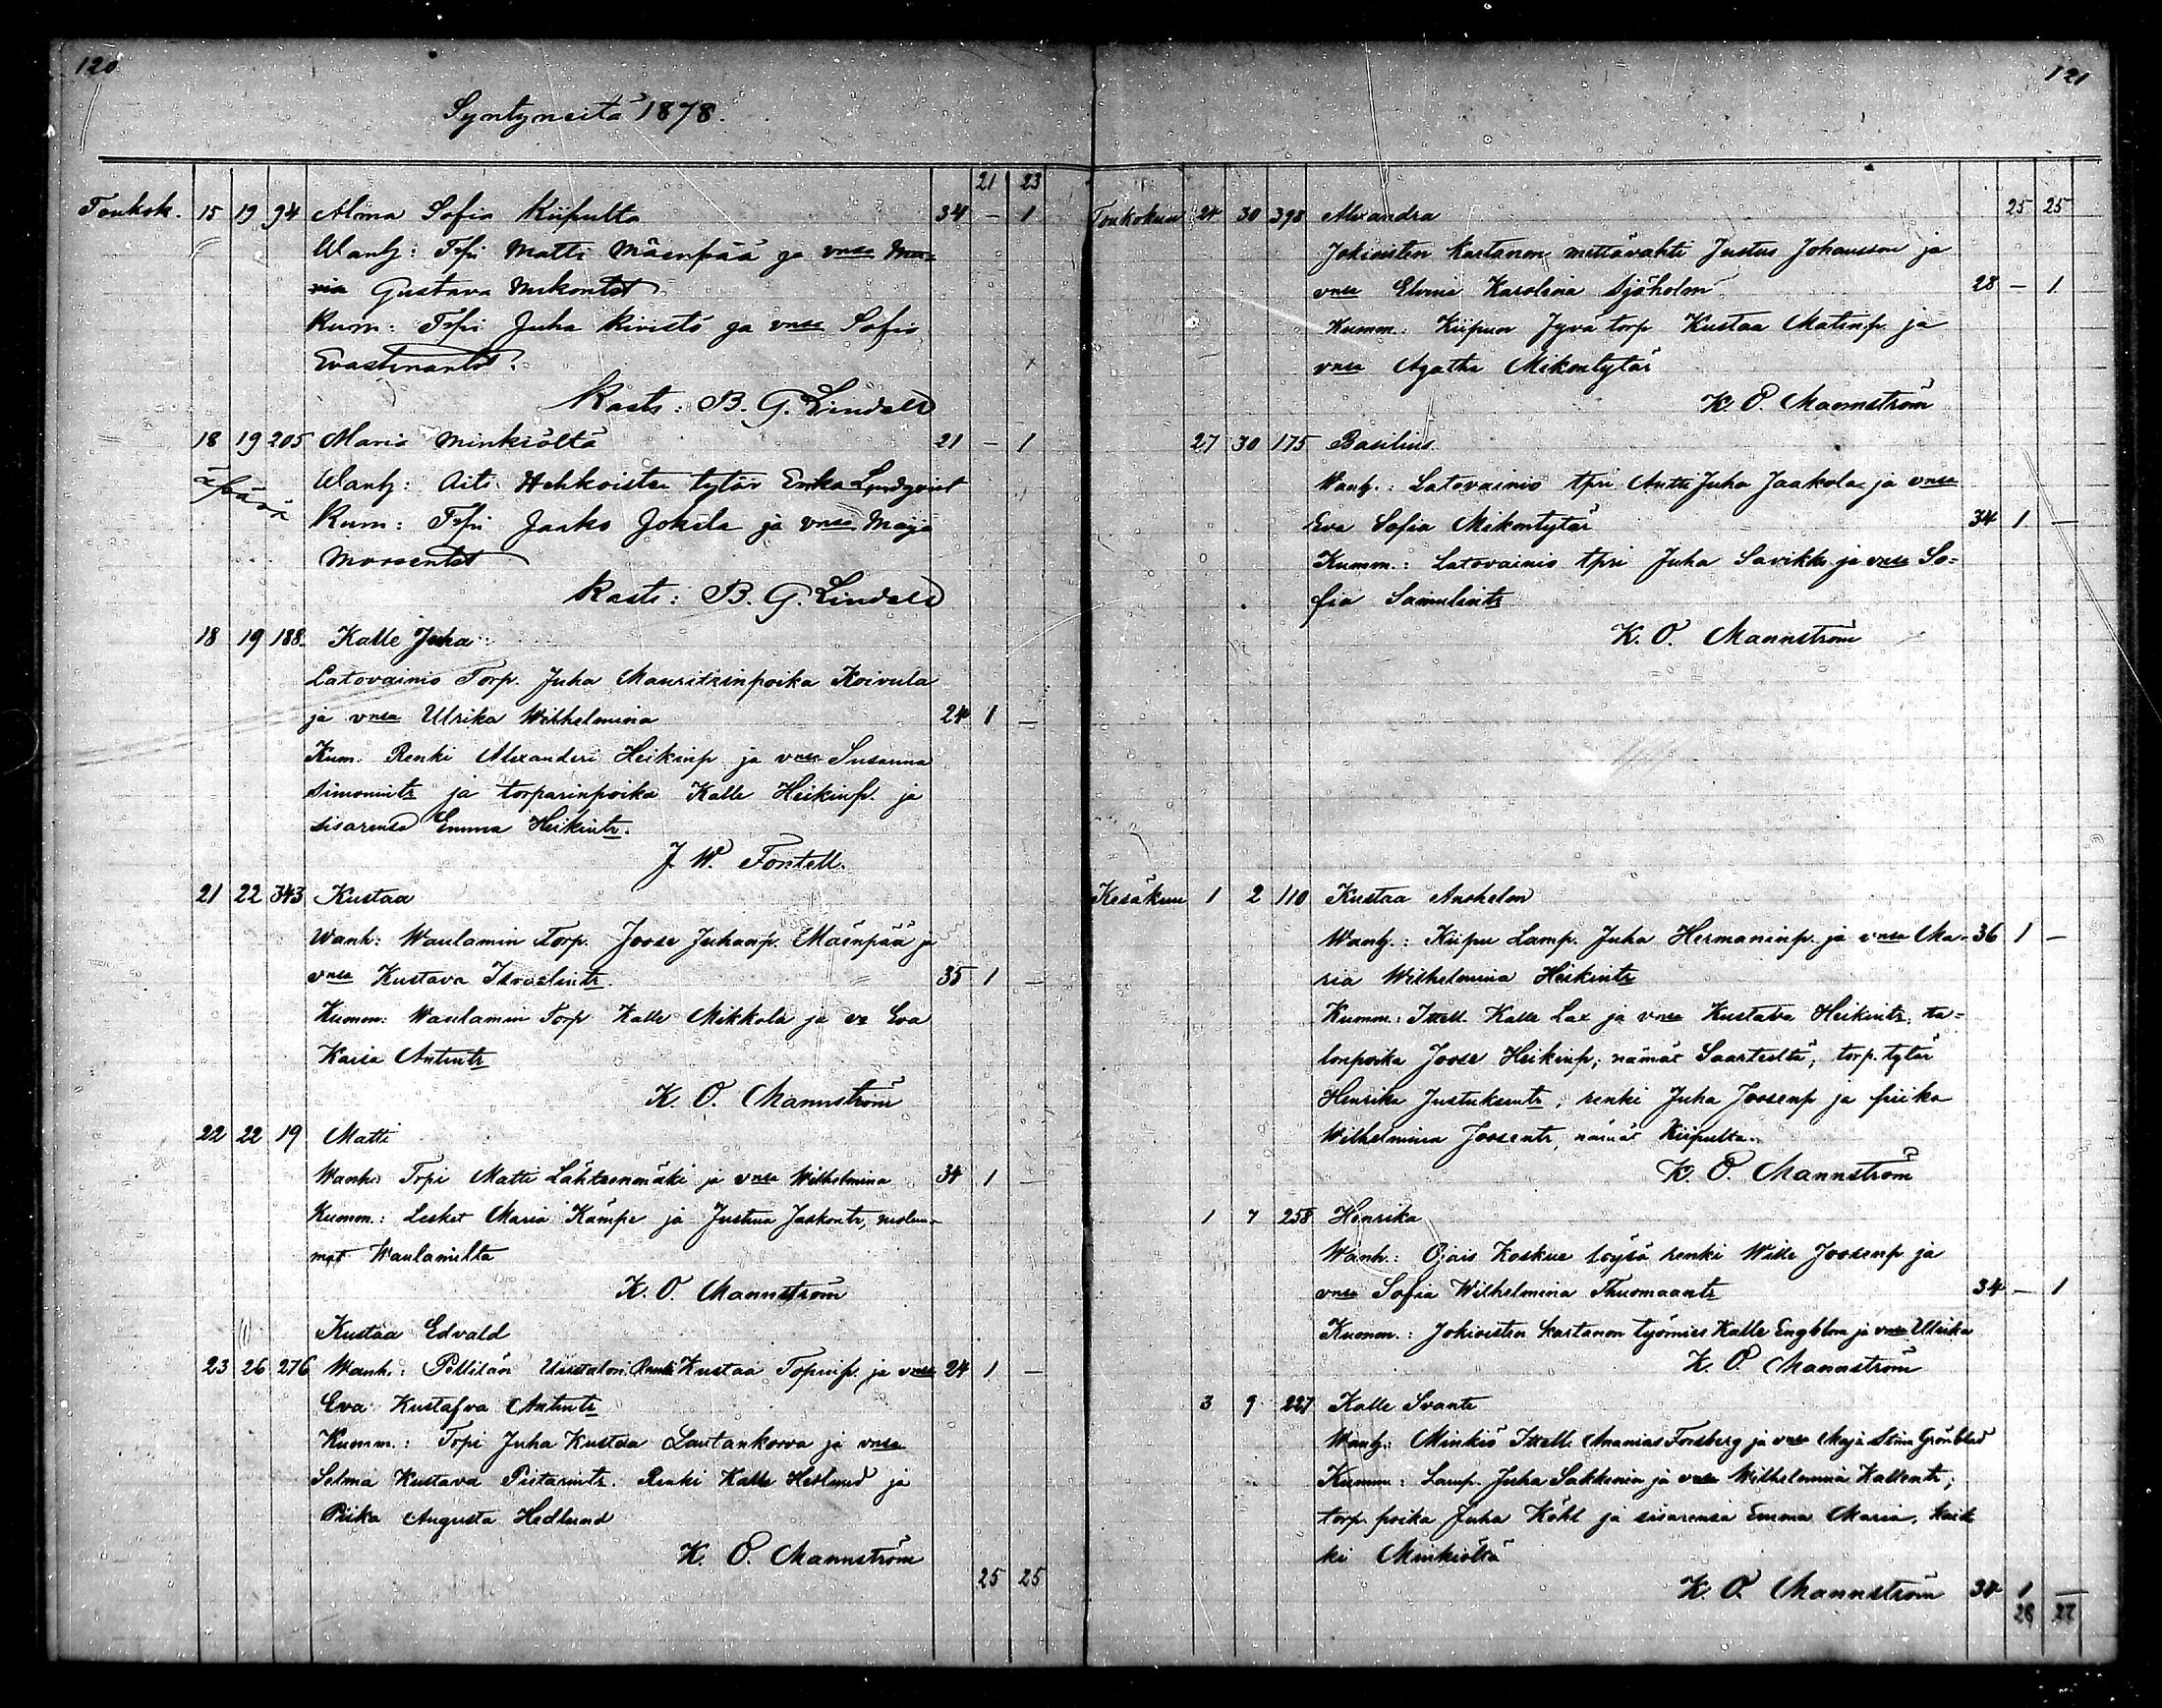 120
Syntyneitä 1878.
21 23
Toukok. 15 19 94 Alma Sofia Kiipulta 34 – 1
Wanh: Trpi Matti Mäenpää ja vnsa Ma-
ria Gustava
Kum: Trpi Juha Kivistö ja vnsa Sofia
Kasts: B. G. Lindell
18 19 205 Maria Minkiöltä 21 – 1
äpärä
Wanh: Äiti Hehkoisten tytär Erika Lindqvist
Kum: Trpi Jaako Jokela ja vnsa Maija
Kasts: B. G. Lindell
18 19 188. Kalle Juha
Latovainio Torp. Juha Mauritzinpoika Koivula
ja vnsa Ulrika Wilhelmina 24 1 –
Kum. Renki Alexanderi Heikinp ja vnsa Susanna
Simonintr ja torparinpoika Kalle Heikinp. ja
sisarensa Emma Heikintr.
J. W. Fontell.
21 22 343 Kustaa
Wanh: Waulamin Torp. Joose Juhanp. Mäenpää ja
vnsa Kustava Israelintr. 35 1 –
Kumm: Waulamin Torp Kalle Mikkola ja va Eva
Kaisa Antintr
K. O. Mannström
22 22 19 Matti
Wanh: Trpi Matti Lähteenmäki ja vnsa Wilhelmina 34 1 –
Kumm.: Lesket Maria Kämpe ja Justina Jaakontr, molem-
mat Waulamilta
K. O. Mannström
Kustaa Edvald
23 26 276 Wanh.: Pellilän Uusitalon Renki Kustaa Topinp. ja vnsa 24 1 –
Eva Kustafva Antintr
Kumm.: Trpi Juha Kustaa Lautankorva ja vnsa
Selma Kustava Pistarintr. Renki Kalle Hedlund ja
Piika Augusta Hedlund
K. O. Mannström
25 25
121
25 25
Toukokuu 24 30 398 Alexandra
Jokioisten kartanon mettävahti Justus Johansson ja
vnsa Elvina Karolina Sjöholm 28 – 1
Kumm.: Kiipun Jyvä torp Kustaa Matinp. ja
vnsa Agatha Mikontytär
K. O. Mannström
27 30 175 Basilius.
Wanh.: Latovainio tpri Antti Juha Jaakola ja vnsa
Eva Sofia Mikontytär 34 1 –
Kumm.: Latovainio tpri Juha Savikko ja vnsa So-
fia Samulintr
K. O. Mannström
Kesäkuu 1 2 110 Kustaa Anshelm
Wanh.: Kiipu Lamp. Juha Hermaninp. ja vnsa Ma- 36 1 –
ria Wilhelmina Heikintr
Kumm.: Ittell. Kalle Lax ja vnsa Kustava Heikintr, ta-
lonpoika Joose Heikinp; nämät Saarteltä; torp. tytär
Henrika Justuksentr; renki Juha Joosenp ja piika
Wilhelmina Joosentr, nämät Kiipulta.
K. O. Mannström
1 7 258 Henrika
Wanh.: Ojais Koskue löysä renki Wille Joosenp ja
vnsa Sofia Wilhelmina Thuomaantr 34 – 1
Kumm.: Jokioisten kartanon työmies Kalle Engblom ja vnsa Ulrika
K. O. Mannström
3 9 227 Kalle Svante
Wanh: Minkiö Ittell. Ananias Forsberg ja vnsa Maja Stina Grönblad
Kumm: Lamp. Juha Sakkinen ja vnsa Wilhelmina Kallentr;
torp. poika Juha Köhl ja sisarensa Emma Maria, kaik-
ki Minkiöltä
K. O. Mannström 38 1 –
28 27